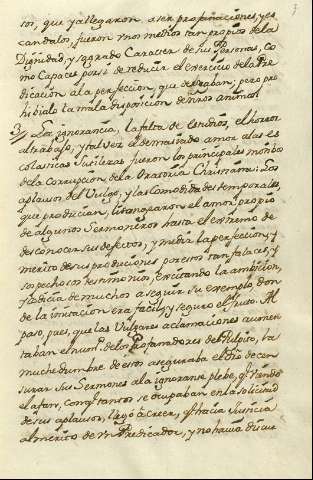 sos, que ya llegaron a ser profanaciones, y es
candalos, fueron unos medios tan propios de la
Dignidad, y sagrado Caracter de sus Personas, co
mo Capaces por si de reducir el exercicio de la Pre
dicación a la perfeccion, que deseaban; pero pro
hibialo la mala disposicion de nros animos.
La ignorancia, la falta de estudios, el horror
al trabajo, y tal vez el demasiado amor a las es
colasticas sutilezas fueron los principales motibos
de la corrupcion de la Oratoria Christiana: Los
aplausos del Vulgo, y las Comodidades temporales,
que producian, lisongearon el amor propio
de algunos Sermoneros hasta el extremo de
desconocer sus defectos, y medir la perfeccion, y
merito de sus producciones por estos tan falaces, y
sospechosos testimonios, excitando la ambicion,
y codicia de muchos a seguir su exemplo, don
de la imitacion era facil, y seguro el fruto. Al
paso, pues, que las Vulgares aclamaciones aumen
taban el num.º de los Profanadores del Pulpito, la
muchedumbre de estos aseguraba el dro de cen
surar sus Sermones a la ignorante plebe, q.e viendo
el afan, con q.e tantos se ocupaban en la solicitud
de sus aplausos, llegó a creer, q.e hacia Justicia
al merito de un Predicador, y no havia discur